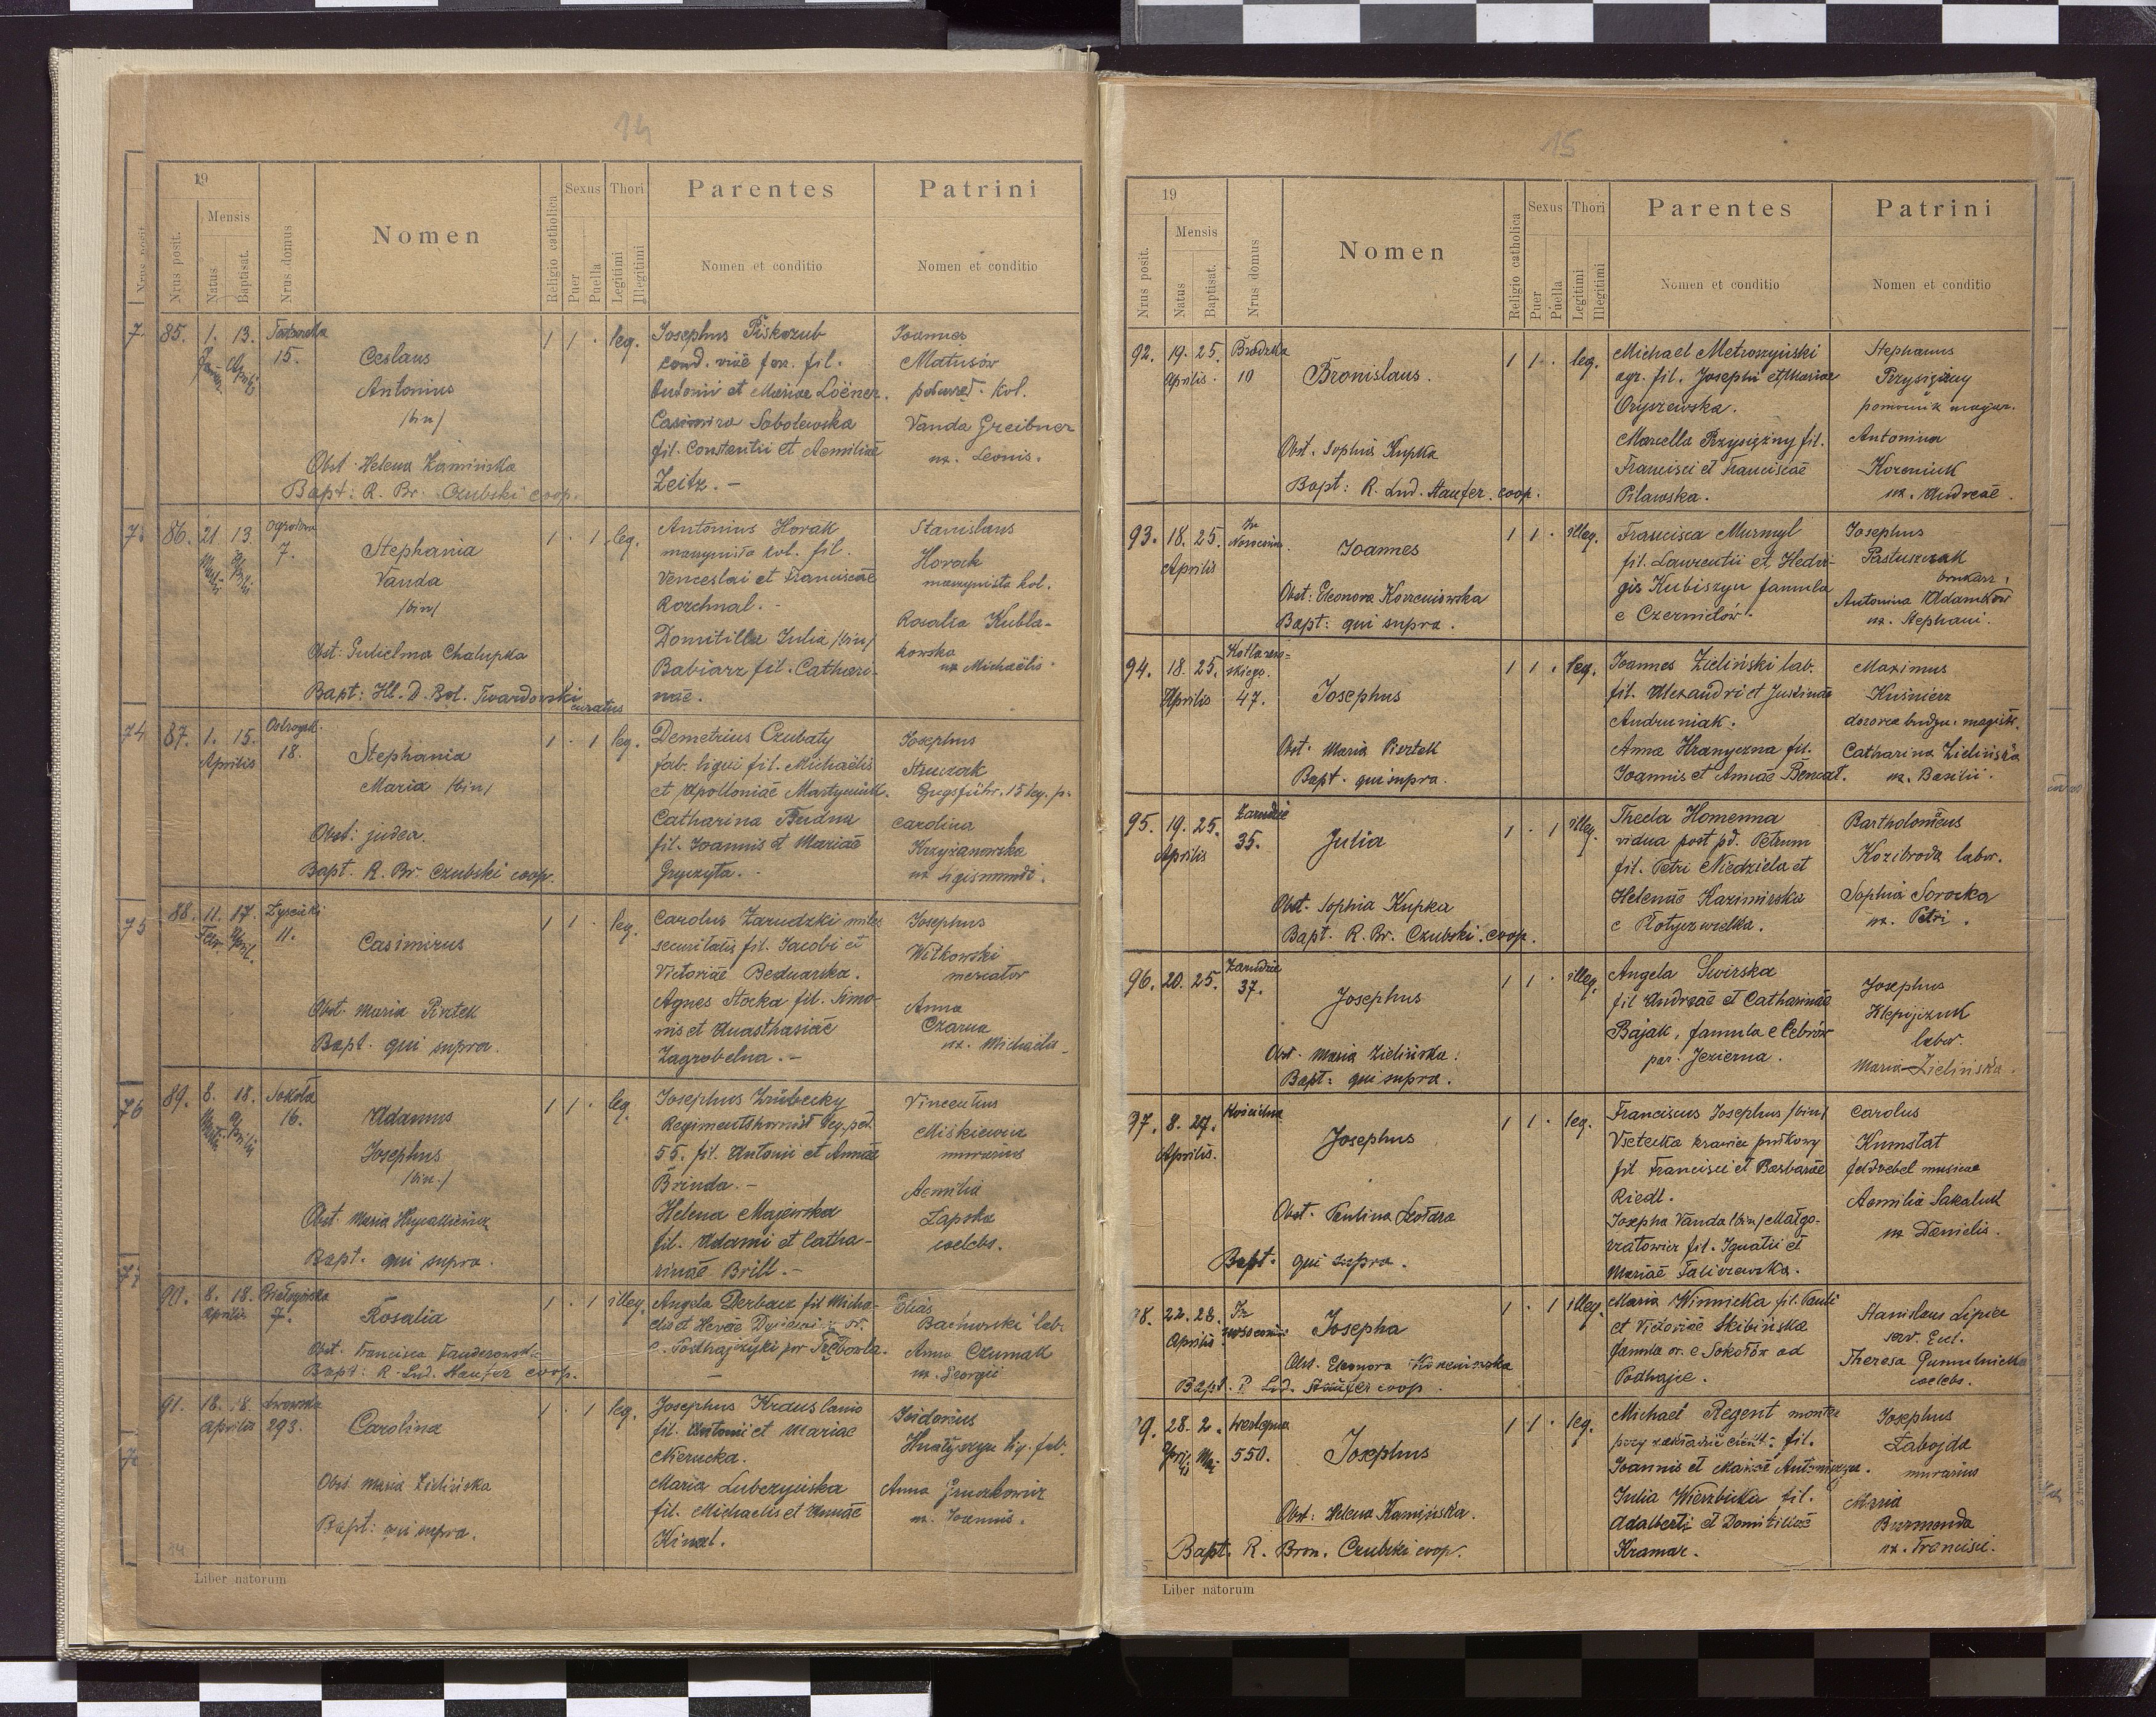 14
19
Nrus posit.
Mensis
Natus
Baptisat.
Nrus domus
Nomen
Religio catholica
Sexus
Puer
Puella
Thori
Legitimi
Illegitimi
Parentes
Nomen et conditio
Patrini
Nomen et conditio
85. 1. 13.
15.
Ceslaus
Antonius
/bin/
Obst. Helena Kamińska
Bapt: R. Br. Czubski coop.
1 1 . leg.
Josephus Piskozub
cond. viae fer. fil.
Antonii et Mariae
Casimira Sobolewska
fil. Constantii et Aemiliae
Zeitz. –
Joannes
Matusów
kol.
Vanda Greibner
ux. Leonis.
86. 21. 13.
7.
Stephania
Vanda
/bin/
Obst: Gulielma Chalupka
Bapt: Hl. D. Bol. Twardowski curatus
1 . 1 leg.
Antonius Horak
maszynista kol. fil.
Venceslai et Franciscae
Rozchnal. -
Domitilla Julia /bin/
Babiarz fil. Cathari-
nae.
Stanislaus
Horak
maszynista kol.
Rosalia Kubla-
kowska
ux Michaëlis.
87. 1. 15.
Aprilis
18.
Stephania
Maria /bin/
Obst: judea.
Bapt. R. Br. Czubski coop.
1 . 1 leg.
Demetrius Czubaty
fab. lign. fil. Michaëlis
et Apolloniae Martyniuk.
Catharina Budna
fil. Joannis et Mariae
Gryczyta. -
Josephus
Struczak
Zugsführ. 15 leg. p.
Carolina
Krzyżanowska
ux Sigismundi.
88. 11. 17.
Febr. April.
11.
Casimirus
Obst. Maria Piontek
Bapt. qui supra.
1 1 . leg.
Carolus Zarudzki miles
securitatis fil. Jacobi et
Victoriae Bednarska.
Agnes Stocka fil. Simo-
nis et Anasthasiae
Zagrobelna. –
Josephus
Witkowski
mercator
Anna
Czarna
ux. Michaëlis
89. 8. 18.
Sokoła
16.
Adamus
Josephus
/bin./
Obst. Maria
Bapt. qui supra.
1 1 . leg.
Josephus Zrůbecky
Regimentshornist leg. ped.
55. fil. Antonii et Annae
Brinda. –
Helena Majewska
fil. Adami et Catha-
rinae Brill. –
Vincentius
Miśkiewicz
murarius
Aemilia
Łapska
coelebs.
90. 8. 18.
Aprilis
7.
Rosalia
Obst. Francisca
Bapt: R. Lud. Staufer coop.
1 . 1 illeg.
Angela Derbacz fil Micha-
elis et Hevae
e. Podhajczyki par Trębowla.
Elias
Bachurski lab.
Anna Czumak
ux. Georgii
91. 18. 18.
Aprilis
Lwowska
293.
Carolina
Obst. Maria Zielińska
Bapt: qui supra.
1 . 1 leg.
Josephus Kraus lanio
fil. Antonii et Mariae
Nierucka.
Maria Lubczyńska
fil. Michaelis et Annae
Kinal.
Isidorius
Hnatyszyn lig. fab.
Anna Gruszkowicz
ux. Joannis.
Liber natorum
15
19
Nrus posit.
Mensis
Natus
Baptisat.
Nrus domus
Nomen
Religio catholica
Sexus
Puer
Puella
Thori
Legitimi
Illegitimi
Parentes
Nomen et conditio
Patrini
Nomen et conditio
92. 19. 25.
Aprilis.
Brodzka
10
Bronislaus.
Obst. Sophia Kupka
Bapt: R. Lud. Staufer. coop.
1 1 . leg.
Michael Metroszyński
agr. fil. Josephi et Mariae
Oryszewska.
Marcella Przysiężny fil.
Francisci et Franciscae
Pilawska.
Stephanus
Przysiężny
pomocnik magaz.
Antonina
Koreniuk
ux. Andreae.
93. 18. 25.
Aprilis
Joannes
Obst: Eleonora Korzeniowska
Bapt: qui supra.
1 1 . illeg.
Francisca Murmyl
fil. Laurentii et Hedvi-
gis Kubiszyn famula
e Czernielów.
Josephus
Pastuszczak
brukarz,
Antonina Adamków
ux. Stephani.
94. 18. 25.
Aprilis
Kotlarew-
skiego.
47.
Josephus
Obst. Maria Piontek
Bapt. qui supra.
1 1 . leg.
Joannes Zieliński lab.
fil. Alexandri et Justinae
Andruniak.
Anna Hranyczna fil.
Joannis et Annae
Maximus
Kuśnierz
dozorca budyn. magistr.
Catharina Zielińska
ux. Basilii.
95. 19. 25.
Aprilis
Zarudzie
35.
Julia
Obst. Sophia Kupka
Bapt. R. Br. Czubski. coop.
1 . 1 illeg.
Thecla Homenna
vidua post pd. Petrum
fil. Petri Niedziela et
Helenae Kazimirska
e
Bartholomeus
Kozibroda labor.
Sophia Sorocka
ux. Petri.
96. 20. 25.
Zarudzie
37.
Josephus
Obst. Maria Zielińska.
Bapt: qui supra.
1 1 . illeg.
Angela Swirska
fil Andreae et Catharinae
Bajak, famula e Cebrów
par. Jezierna.
Josephus
labor.
Maria Zielińska.
97. 8. 27.
Aprilis.
Kościelna
Josephus
Obst. Paulina Kotára
Bapt. qui supra.
1 1 . leg.
Franciscus Josephus /bin/
Vsetecka krawiec pułkowy
fil Francisci et Barbarae
Riedl.
Josepha Vanda /bin/ Małgo-
rzatowicz fil. Ignatii et
Mariae Faliszewska.
Carolus
Kumstat
feldvebel musicae
Aemilia Sakaluk
ux Danielis.
98. 22. 28.
Aprilis
Josepha
Obst. Eleonora Korzeniowska
Bapt. R. Lud. Staufer coop.
1 . 1 illeg.
Maria Winnicka fil. Pauli
et Victoriae Skibińska
famula or. e Sokołów ad
Podhajce.
Stanislaus Lipiec
serv. Eccl.
Theresa Gumulnicka
coelebs.
99. 28. 2.
Aprilis Mai
550.
Josephus
Obst: Helena Kamińska.
Bapt. R. Bron. Czubski coop.
1 1 . leg.
Michael Regent monter
przy zakładzie elekt: fil.
Joannis et Mariae
Julia Wierzbicka fil.
Adalberti et Domitillae
Kramar.
Josephus
Łabojda
murarius
Maria
Burmenda
ux. Francisci.
Liber natorum